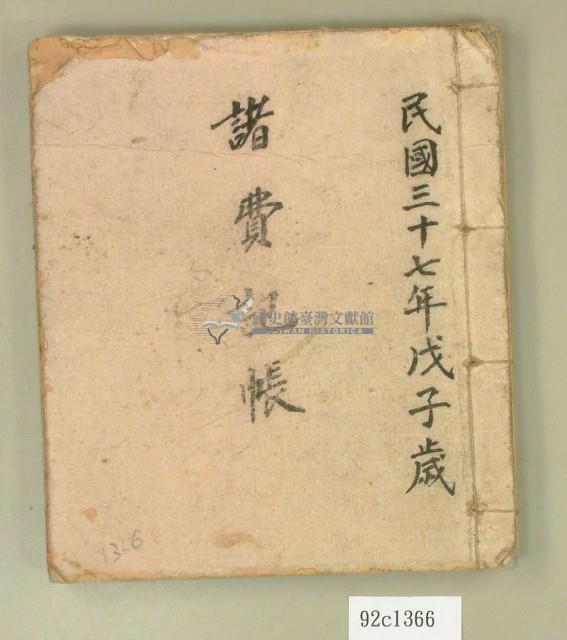 民國三十七年戊子歲
諸費記帳
國史館臺灣文獻館
TAIWAN HISTORICA
1366
92c1366